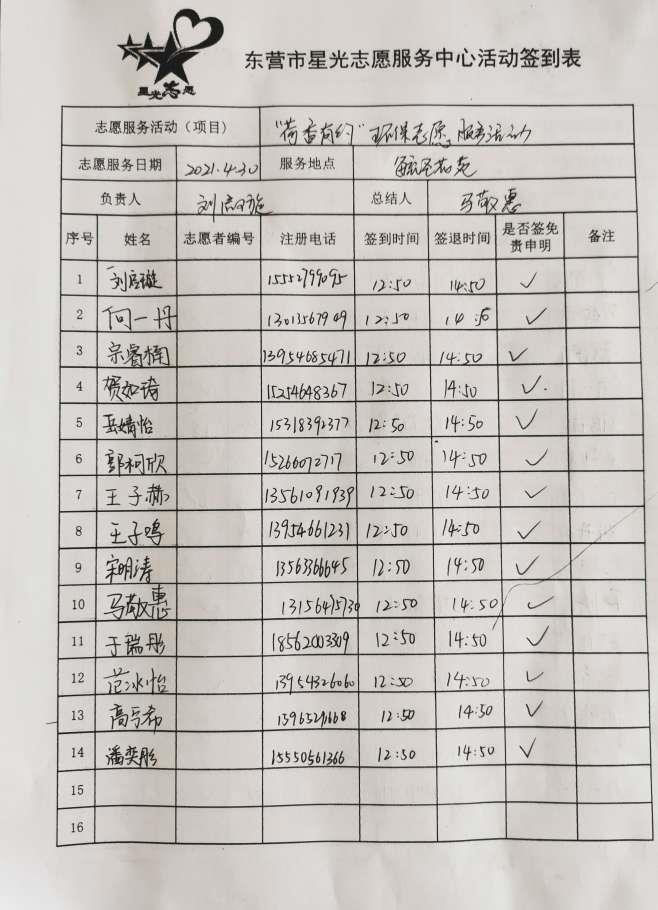 星光志愿
东营市星光志愿服务中心活动签到表
志愿服务活动（项目） "荷香有约"环保志愿服务活动
志愿服务日期 2021.4.30 服务地点
负责人 刘 总结人 马敬惠
序号 姓名 志愿者编号 注册电话 签到时间 签退时间 是否签免责申明 备注
1 刘 璇 15552799095 12:50 14:50 ✓
2 何一丹 13013567949 12:50 14:50 ✓
3 宗睿楠 13954685471 12:50 14:50 ✓
4 贺如琦 15254648367 12:50 14:50 ✓
5 岳婧怡 15318392377 12:50 14:50 ✓
6 郭柯欣 15266072717 12:50 14:50 ✓
7 王子赫 13561091939 12:50 14:50 ✓
8 王子鸣 13954661231 12:50 14:50 ✓
9 宋明涛 1356366645 12:50 14:50 ✓
10 马敬惠 13156475730 12:50 14:50 ✓
11 于瑞彤 18562003309 12:50 14:50 ✓
12 范冰怡 13954326060 12:50 14:50 ✓
13 高 希 12:50 14:50 ✓
14 潘奕彤 15550561366 12:50 14:50 ✓
15
16